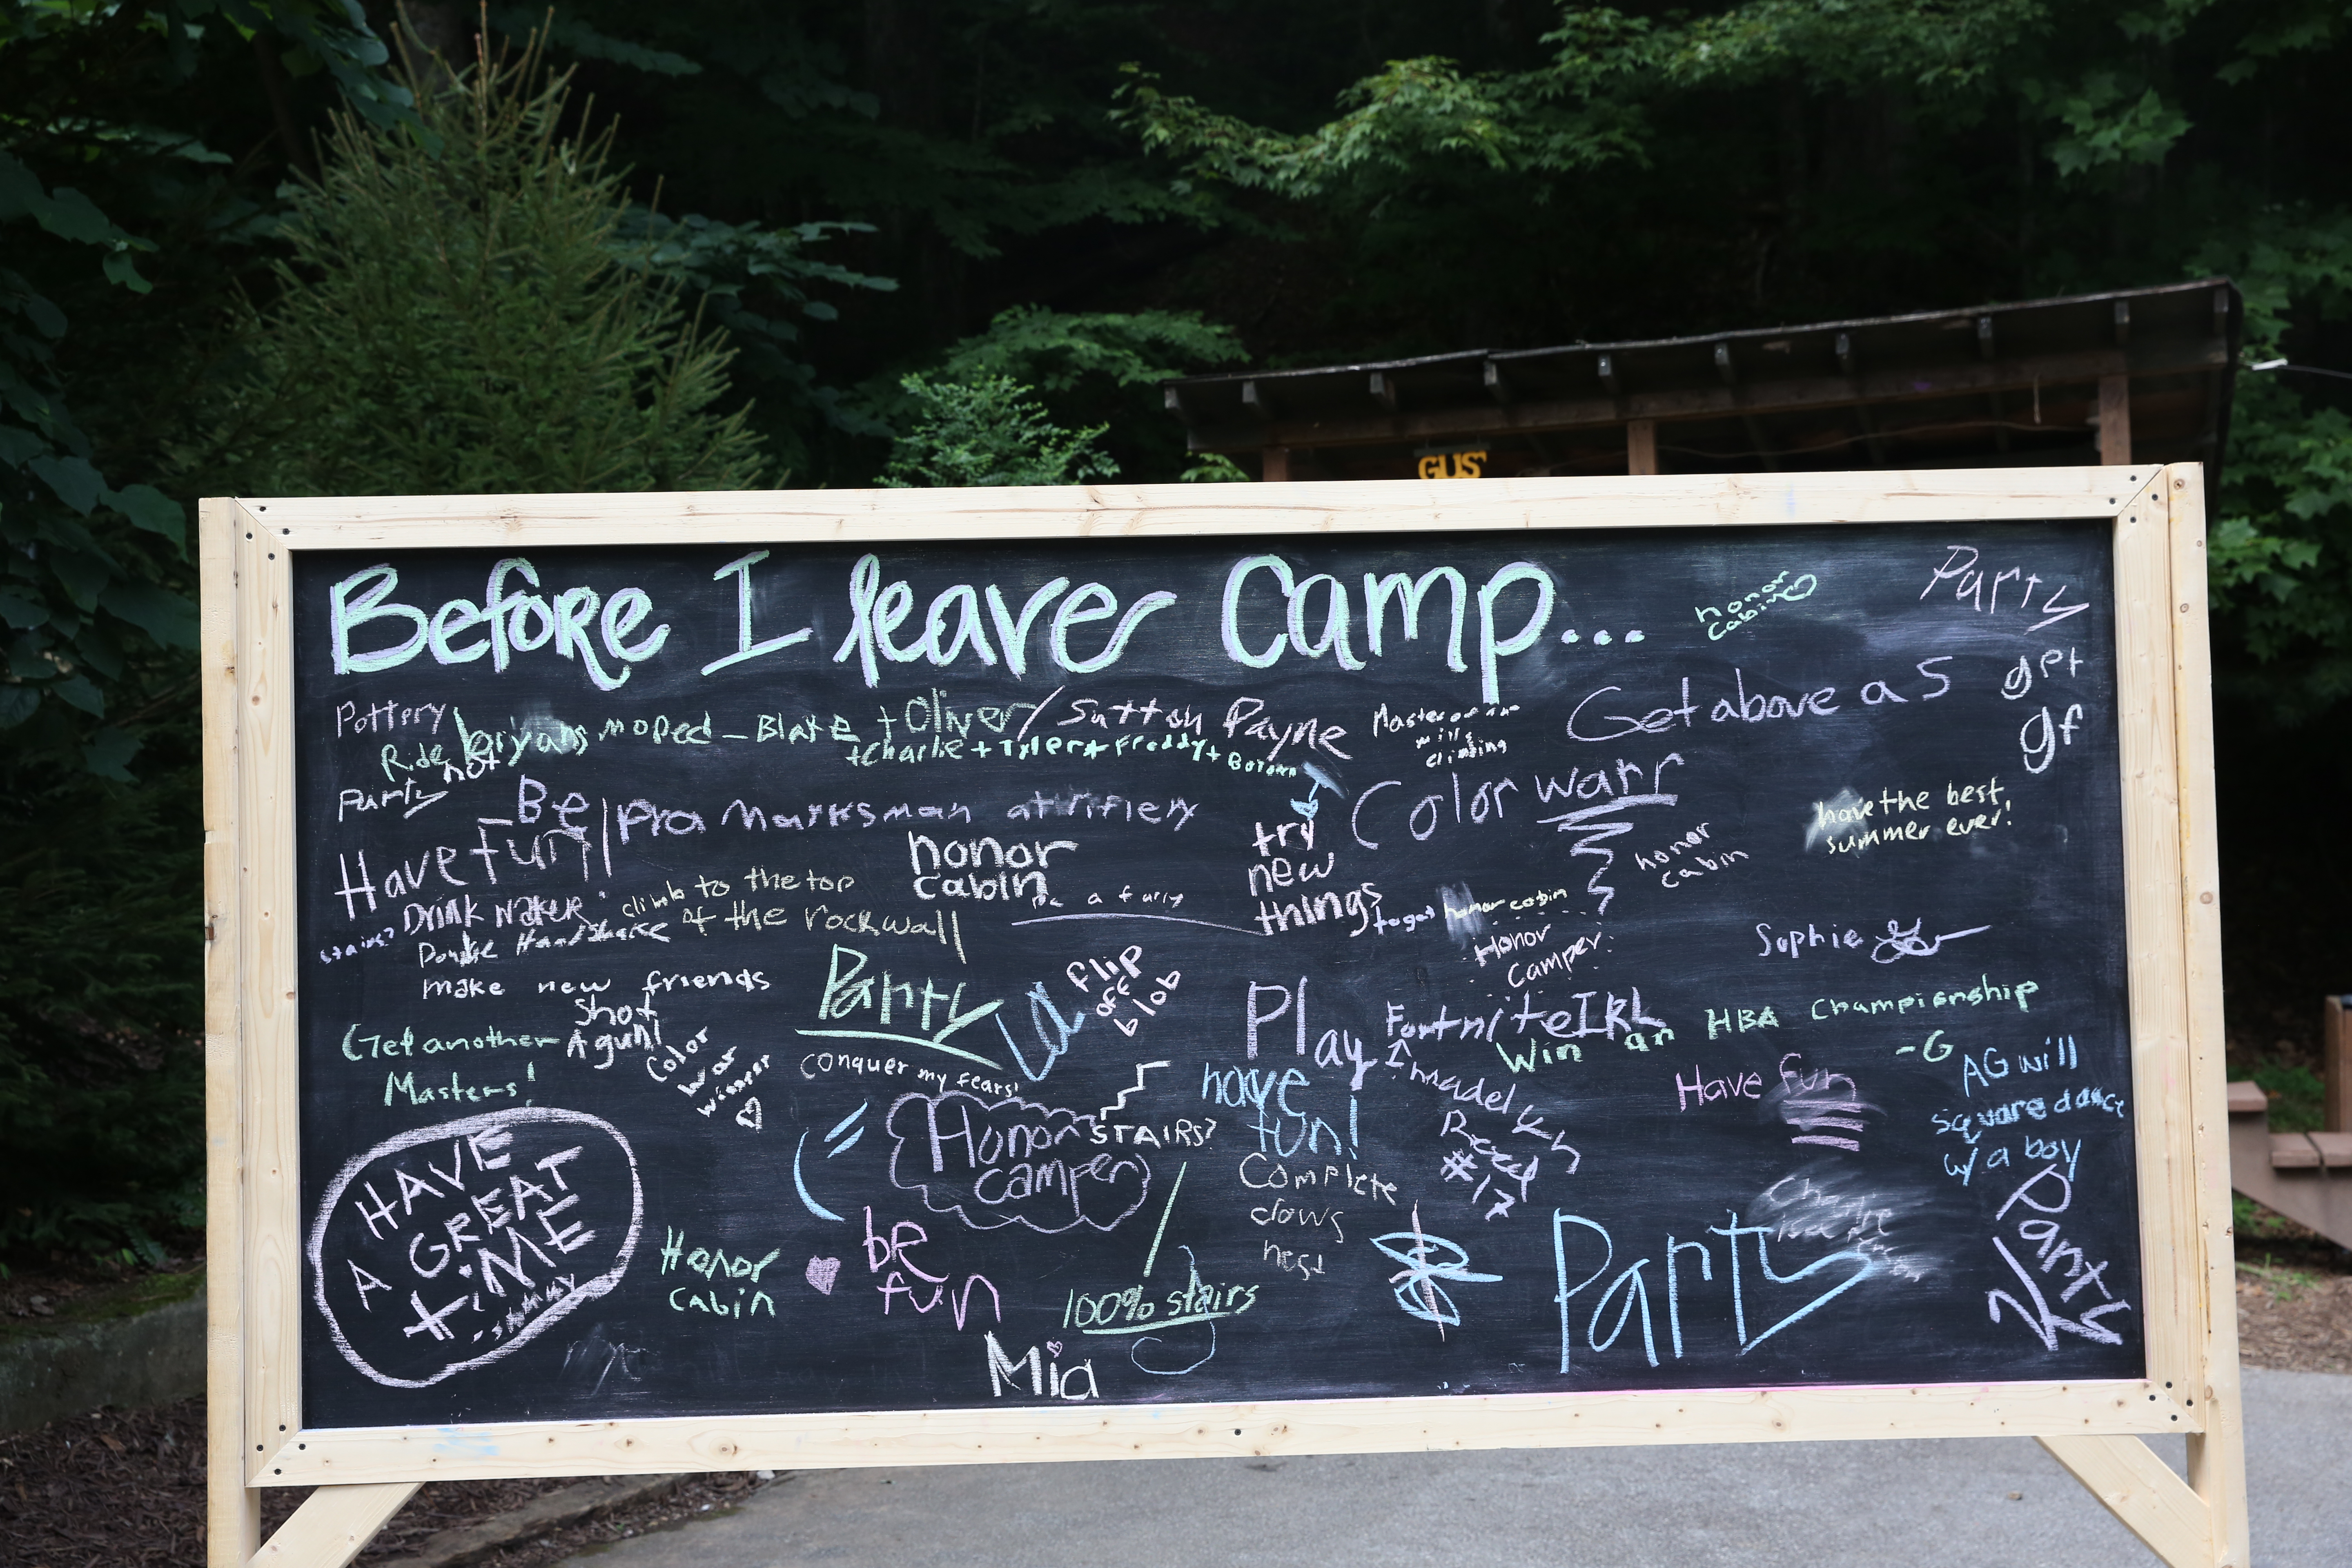 GUS'
Before I leave Camp...
honor
cabin
Party
get
gf
Get above a 5
Pottery
Ride bryans moped - Blake + Oliver / Sutton Payne
+ Charlie + Tyler + Freddy +
Master
climbing
not
Party
Be
Have fun!
pro Marksman at riflery
Color warr
have the best
summer ever!
honor
cabin
try
new
things
honor
cabin
Drink water
climb to the top
of the rockwall
stairs?
Double Handshake
to get honor cabin
Honor
Camper
Sophie
make new friends
Shot
A gun!
Get another
Masters!
Color
war
winner
Party
La
flip
off
blob
conquer my fears!
Play Fortnite IRL
Win an HBA Championship
-G
madelyn
Reed
#17
Have fun
AG will
square dance
w/ a boy
have
fun!
STAIRS?
Honor
camper
Complete
claws
HAVE
A GREAT
TIME
Honor
cabin
be
fun
100% stairs
Mia
Party
Charlie
is a
Party